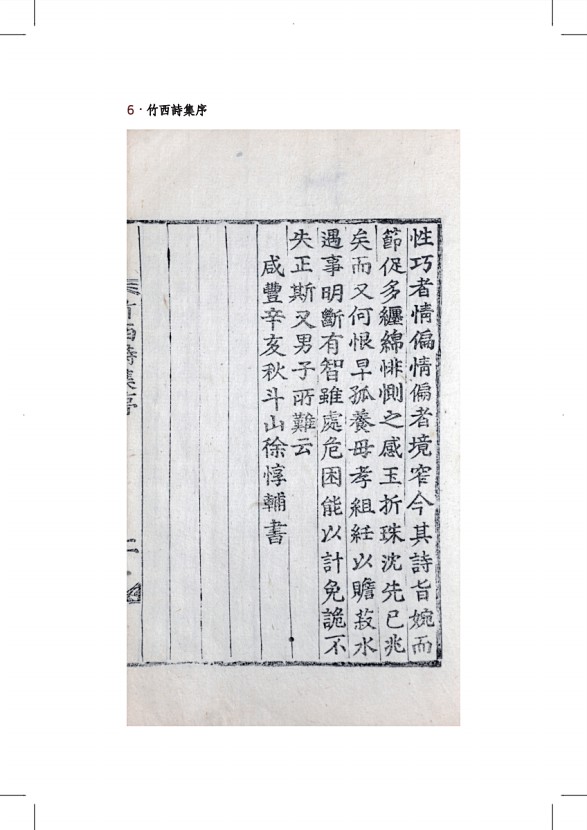 6 · 竹西詩集序
性巧者情偏情偏者境窄今其詩旨婉而
節促多纏綿悱惻之感玉折珠沈先已兆
矣而又何恨早孤養母孝組紝以贍菽水
遇事明斷有智雖處危困能以計免詭不
失正斯又男子所難云
咸豐辛亥秋斗山徐惇輔書
竹西詩集序
二